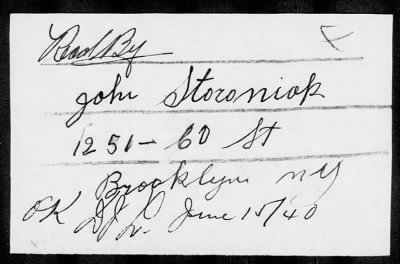 Read By X
John Storoniak
1251 - 60 St
Brooklyn NY
OK D.J.L. June 15/40